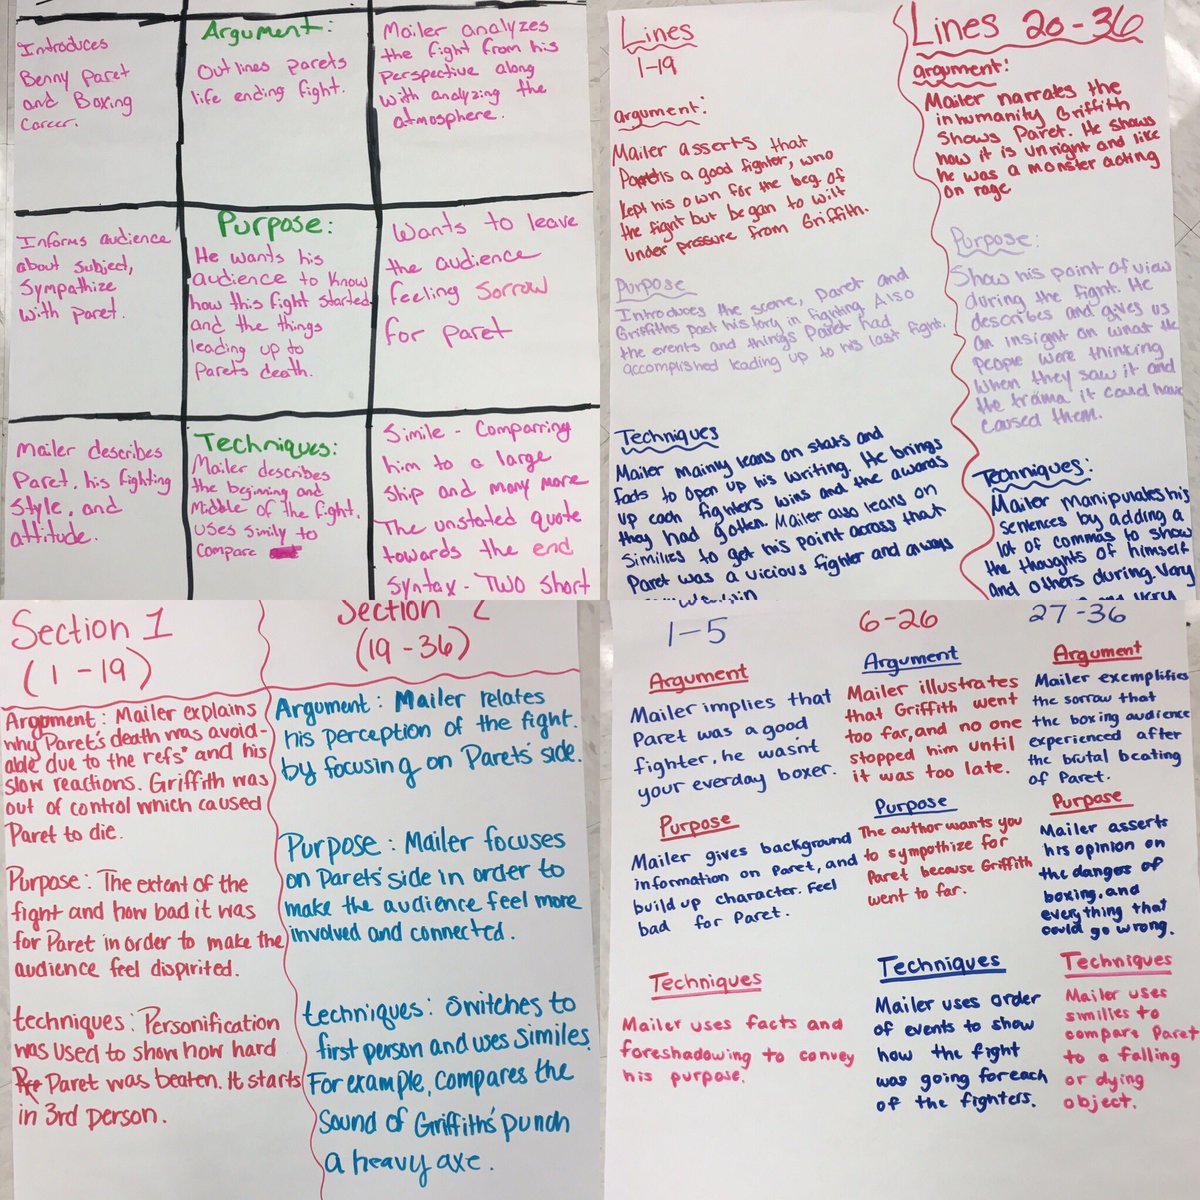 Introduces
Benny Paret
and Boxing
Career.
Argument:
Outlines parets
life ending fight.
Mailer analyzes
the fight from his
perspective along
with analyzing the
atmosphere.
Informs audience
about subject,
Sympathize
with Paret.
Purpose:
He wants his
audience to know
how this fight started
and the things
leading up to
Parets death.
Wants to leave
the audience
feeling sorrow
for paret
Mailer describes
Paret, his fighting
style, and
attitude.
Techniques:
Mailer describes
the beginning and
Middle of the fight.
uses simily to
compare
Simile - Comparring
him to a large
ship and many more
The unstated quote
towards the end
Syntax - Two short
Lines
1-19
argument:
Mailer asserts that
is a good fighter, who
kept his own for the beg. of
the fight but began to wilt
under pressure from Griffith.
Purpose
Introduces the scene, Paret and
Griffiths past history in fighting. Also
the events and things Paret had
accomplished leading up to his last fight.
Techniques
Mailer mainly leans on stats and
facts to open up his writing. He brings
up each fighters wins and the awards
they had gotten. Mailer also leans on
Similies to get his point across that
Paret was a vicious fighter and always
Lines 20-36
argument:
Mailer narrates the
inhumanity Griffith
Shows Paret. He shows
how it is unright and like
he was a monster acting
on rage
Purpose:
Show his point of view
during the fight. He
describes and gives us
an insight on what the
People were thinking
when they saw it and
the trama it could have
caused them.
Techniques:
Mailer manipulates his
sentences by adding a
lot of commas to show
the thoughts of himself
and others during. Very
Section 1
(1-19)
Argument: Mailer explains
why Paret's death was avoid-
able due to the refs" and his
slow reactions. Griffith was
out of control which caused
Paret to die.
Purpose: The extent of the
fight and how bad it was
for Paret in order to make the
audience feel dispirited.
techniques: Personification
was used to show how hard
Paret was beaten. It starts
in 3rd person.
Section 2
(19-36)
Argument: Mailer relates
his perception of the fight.
by focusing on Parets' side.
Purpose: Mailer focuses
on Parets' side in order to
make the audience feel more
involved and connected.
techniques: Switches to
first person and uses Similes.
For example, compares the
sound of Griffith's punch
a heavy axe.
1-5
Argument
Mailer implies that
Paret was a good
fighter, he wasnt
your everday boxer.
Purpose
Mailer gives background
information on Paret, and
build up character. Feel
bad for Paret.
Techniques
Mailer uses facts and
foreshadowing to convey
his purpose.
6-26
Argument
Mailer illustrates
that Griffith went
too far, and no one
stopped him until
it was too late.
Purpose
The author wants you
to sympothize for
Paret because Griffith
went to far.
Techniques
Mailer uses order
of events to show
how the fight
was going foreach
of the fighters.
27-36
Argument
Mailer exemplifies
the sorrow that
the boxing audience
experienced after
the brutal beating
of Paret.
Purpose
Mailer asserts
his opinion on
the dangers of
boxing, and
everything that
could go wrong.
Techniques
Mailer uses
similies to
compare Paret
to a falling
or dying
object.